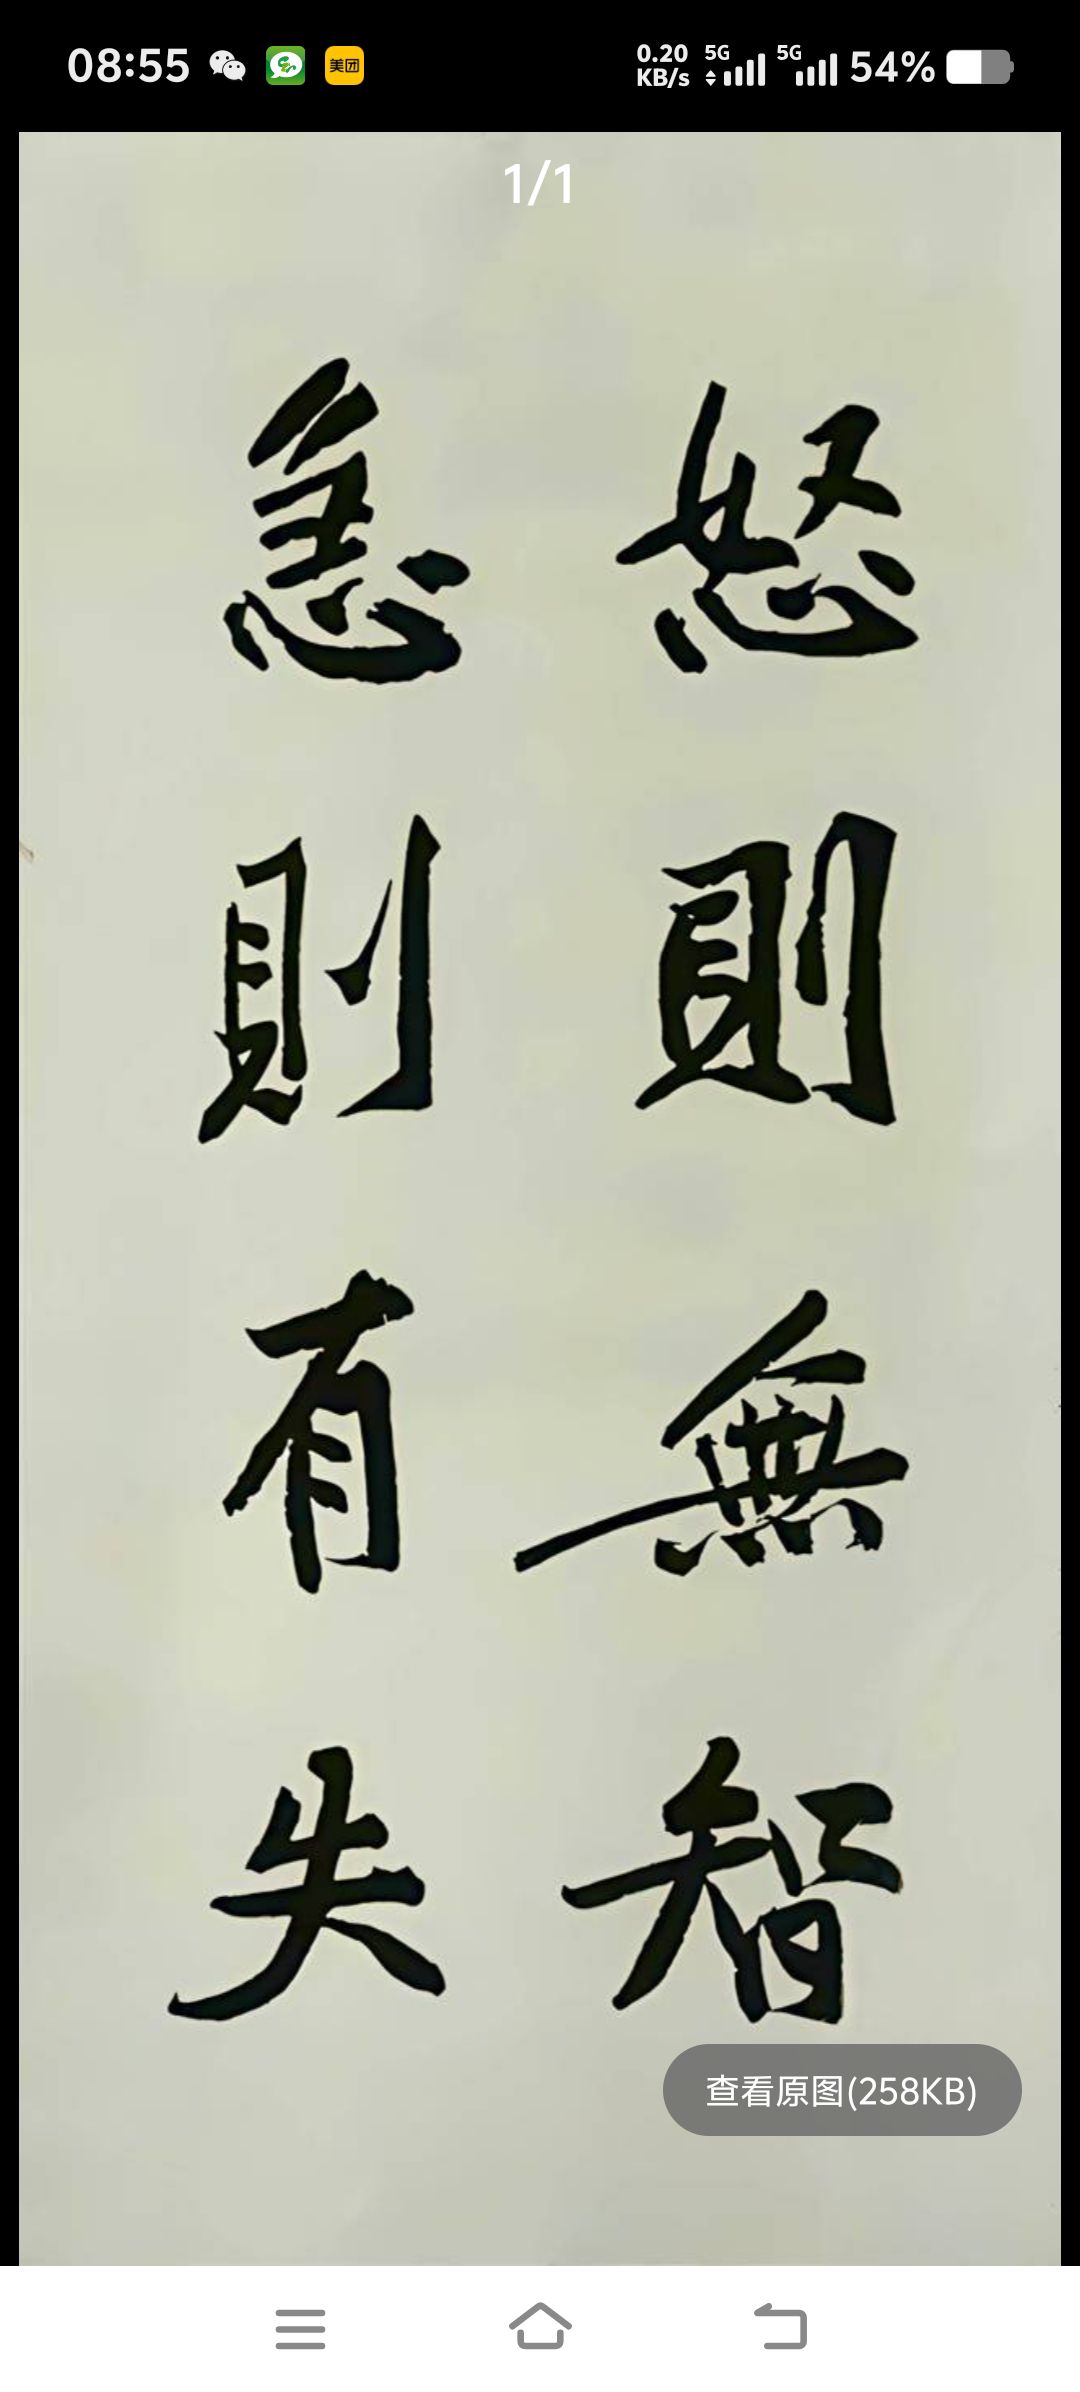 08:55
美团
0.20 KB/s 5G 5G 54%
1/1
怒則無智
急則有失
查看原图(258KB)